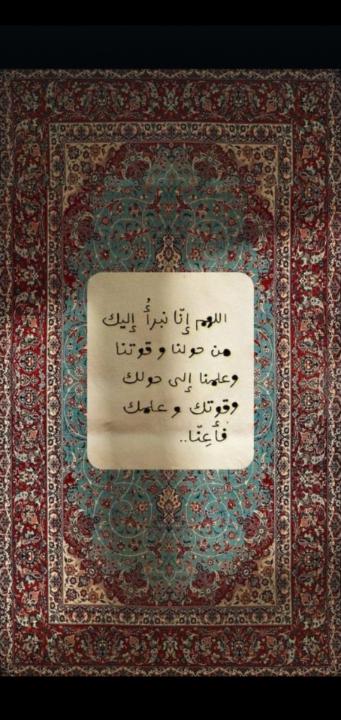 اللهم إنّا نبرأُ إليك
من حولنا و قوتنا
وعلمنا إلى حولك
وقوتك و علمك
فأَعِنّا..